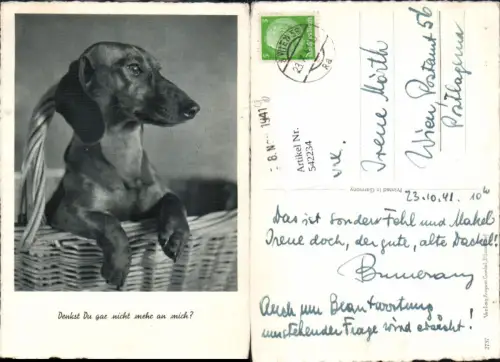 Denkst Du gar nicht mehr an mich?
WIEN 56
23.
8. NOV 1941
Artikel Nr.
542234
Irene Mörth
Wien, Postamt 56
Postlagernd
Printed in Germany
23.10.41. 10
Das ist sonder Fehl und Makel
Irene doch, der gute, alte Dackel!
Bumerang
Auch um Beantwortung
umstehender Frage wird ersucht!